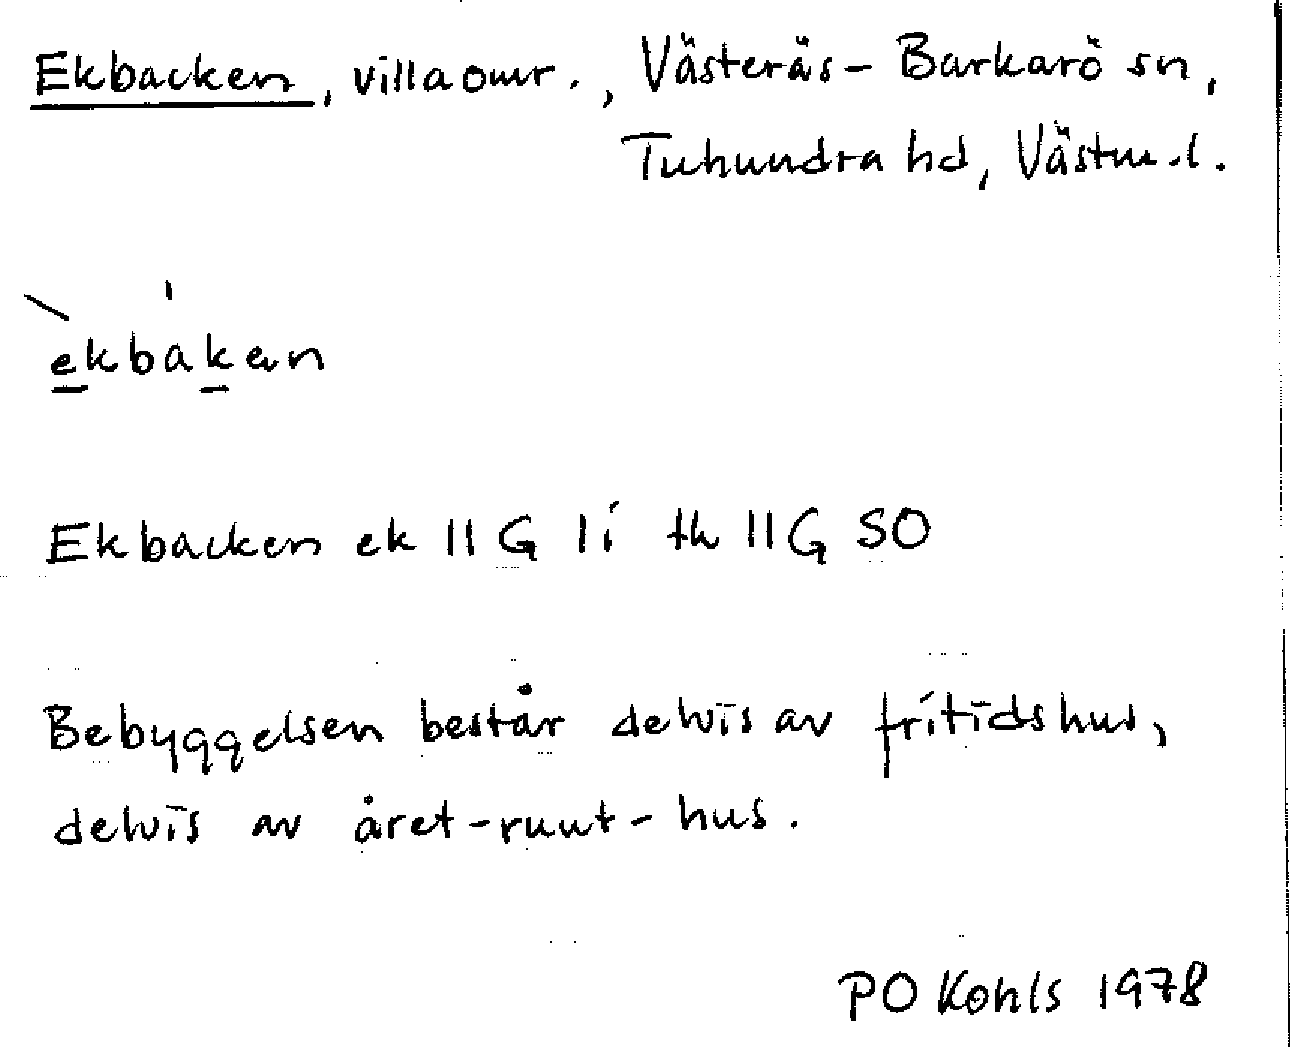 Ekbacken, villaomr., Västerås-Barkarö sn,
Tuhundra hd, Västm.l.
ekbaken
Ekbacken ek 11G 1i tk 11G SO
Bebyggelsen består delvis av fritidshus,
delvis av året-runt-hus.
PO Kohls 1978